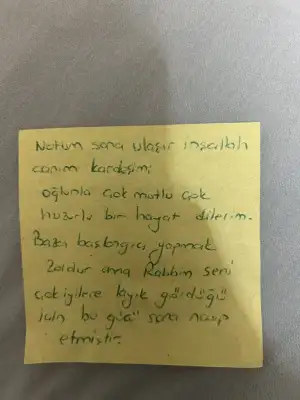 Notum sana ulaşır inşallah
canım kardeşim;
oğlunla çok mutlu çok
huzurlu bir hayat dilerim.
Bazı başlangıcı yapmak
Zordur ama Rabbim seni
çok iyilere layık gördüğü
için bu gücü sana nasip
etmiştir.